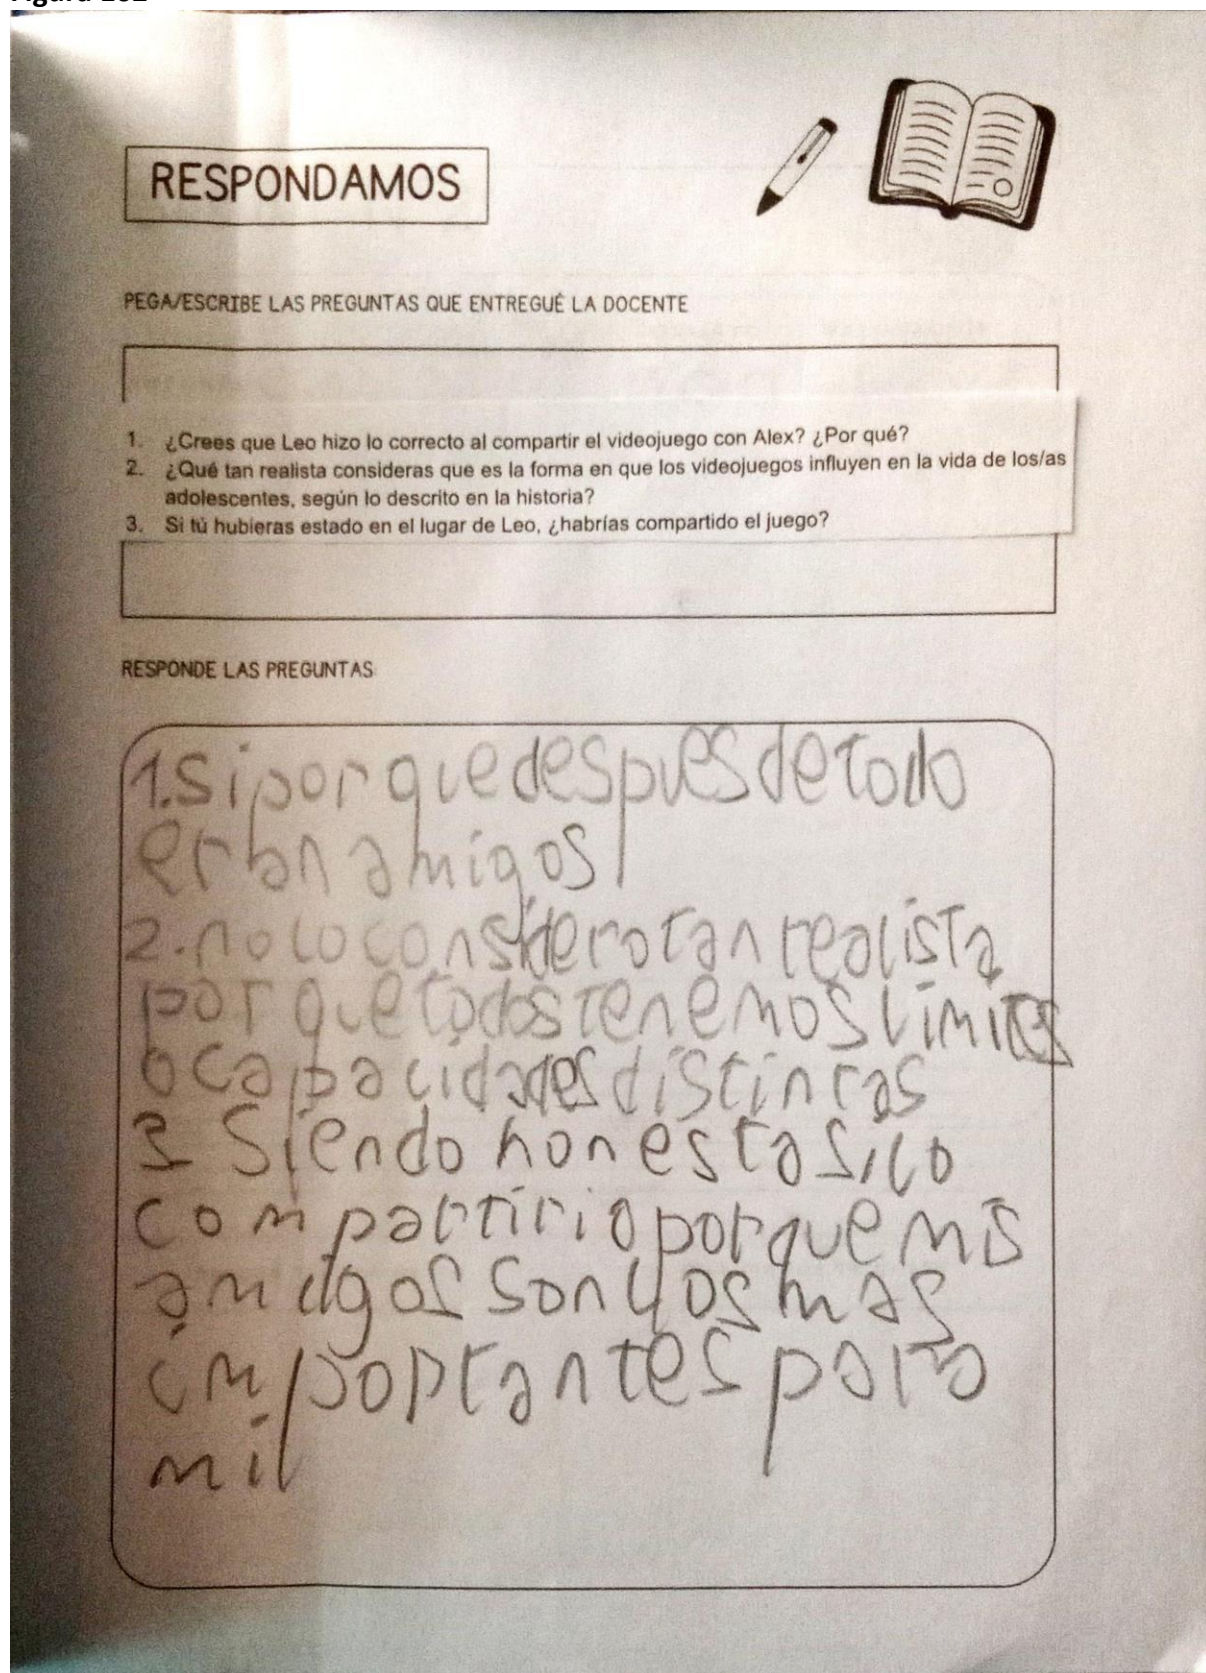 RESPONDAMOS
PEGA/ESCRIBE LAS PREGUNTAS QUE ENTREGUÉ LA DOCENTE
1. ¿Crees que Leo hizo lo correcto al compartir el videojuego con Alex? ¿Por qué?
2. ¿Qué tan realista consideras que es la forma en que los videojuegos influyen en la vida de los/as
adolescentes, según lo descrito en la historia?
3. Si tú hubieras estado en el lugar de Leo, ¿habrías compartido el juego?
RESPONDE LAS PREGUNTAS:
1. Si por que despues de todo
eran amigos
2. no lo considero tan realista
por que todos tenemos límites
o capacidades distintas
3 Siendo honesta si lo
compartirio porque mis
amigos son los mas
importantes para
mi